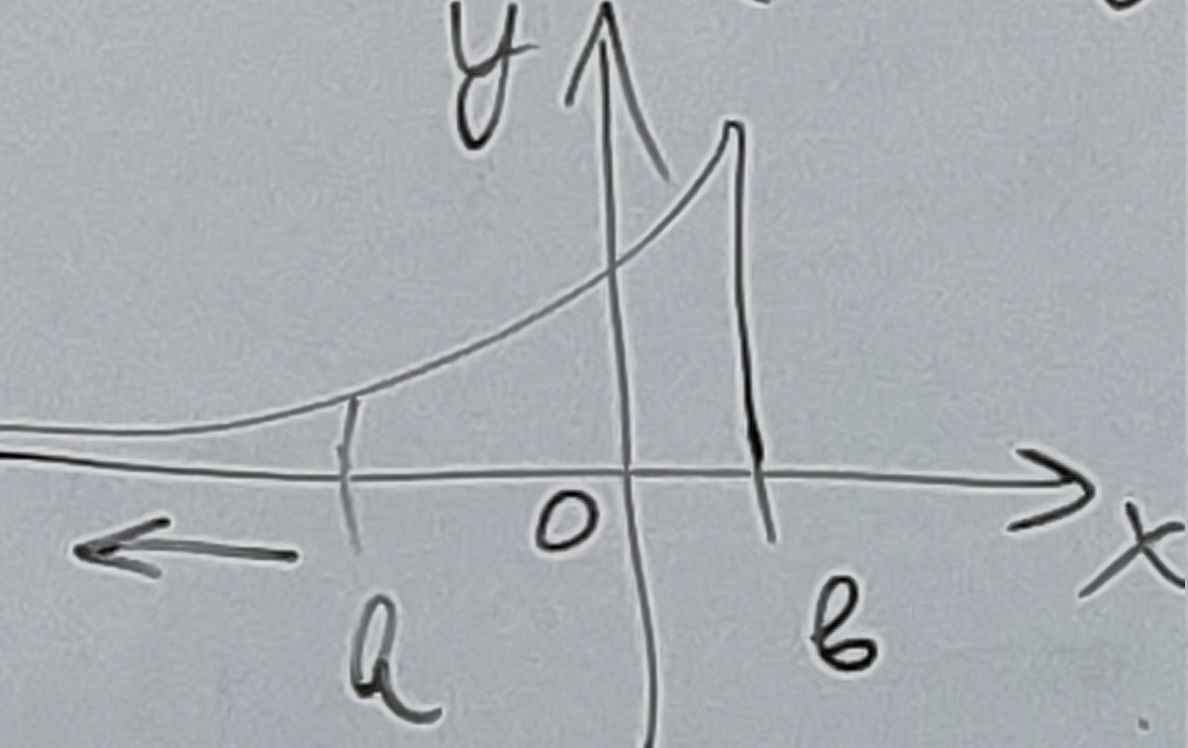 y
0
x
a
b